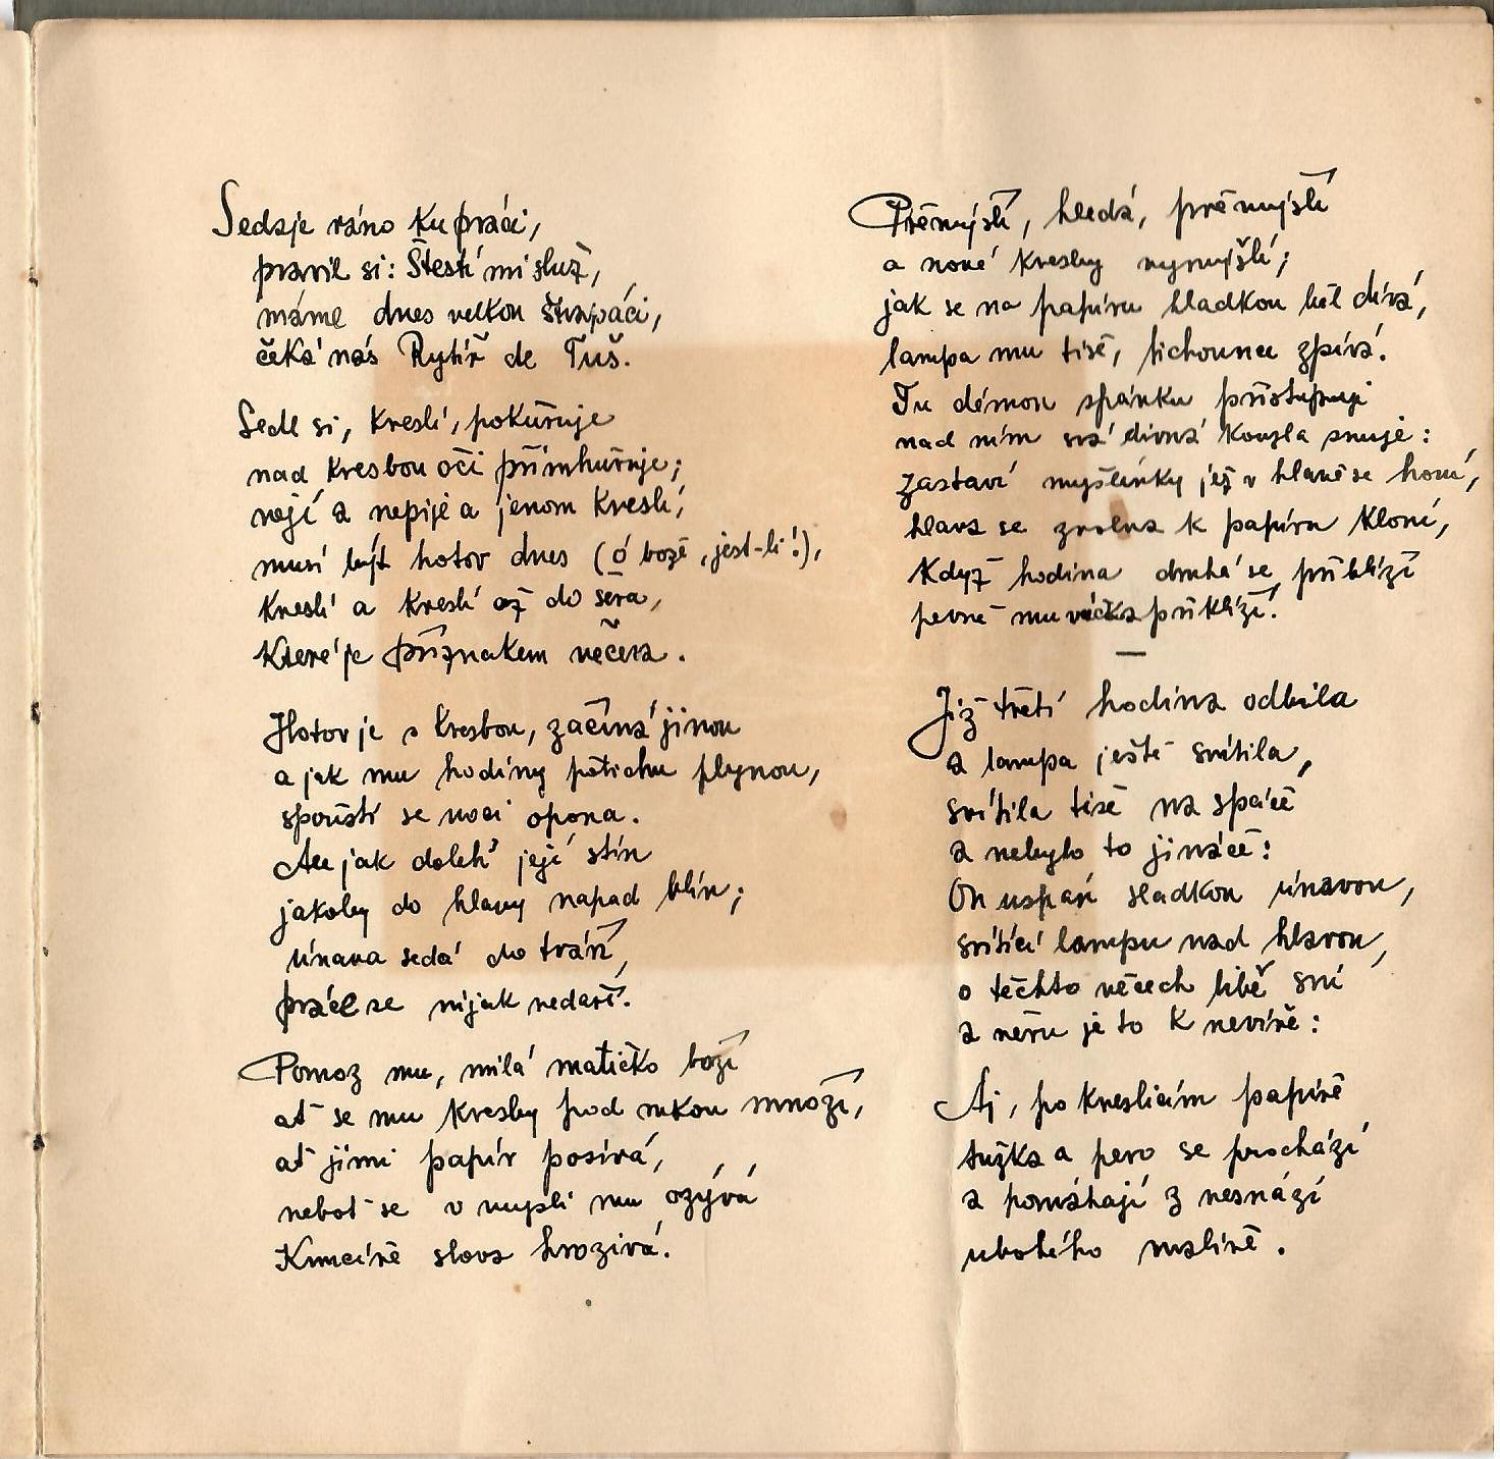 Sedaje ráno ku práci,
pravil si: Štěstí mi služ,
máme dnes velkou štrapáci,
čeká nás Rytíř de Tuš.
Sedl si, kreslí, pokuřuje
nad kresbou oči přimhuřuje;
nejí a nepije a jenom kreslí,
musí být hotov dnes (ó bože, jest-li!),
kreslí a kreslí až do šera,
které je příznakem večera.
Hotov je s kresbou, začíná jinou
a jak mu hodiny potichu plynou,
spouští se noci opona.
Ale jak doleh' její stín
jakoby do hlavy napad klín;
únava sedá do tváří,
práce se nijak nedaří.
Pomoz mu, milá matičko boží
ať se mu kresby pod rukou množí,
ať jimi papír posívá,
neboť se v mysli mu ozývá
Kmeíně slova hrozivá.
Přemýšlí, hledá, přemýšlí
a nové kresby vymýšlí;
jak se na papíru hladkou běl dívá,
lampa mu tiše, tichounce zpívá.
Tu démon spánku přistupuje
nad ním svá divná kouzla snuje:
zastaví myšlenky jež v hlavě se honí,
hlava se zvolna k papíru kloní,
Když hodina druhá se přiblíží
pevně mu víčka přiklíží.
—
Již třetí hodina odbila
a lampa ještě svítila,
svítila tiše na spáče
a nebylo to jináče:
On uspán sladkou únavou,
svítící lampu nad hlavou,
o těchto věcech libě sní
a věru je to k nevíře:
Aj, po kreslícím papíře
tužka a pero se prochází
a pomáhají z nesnází
ubohého malíře.